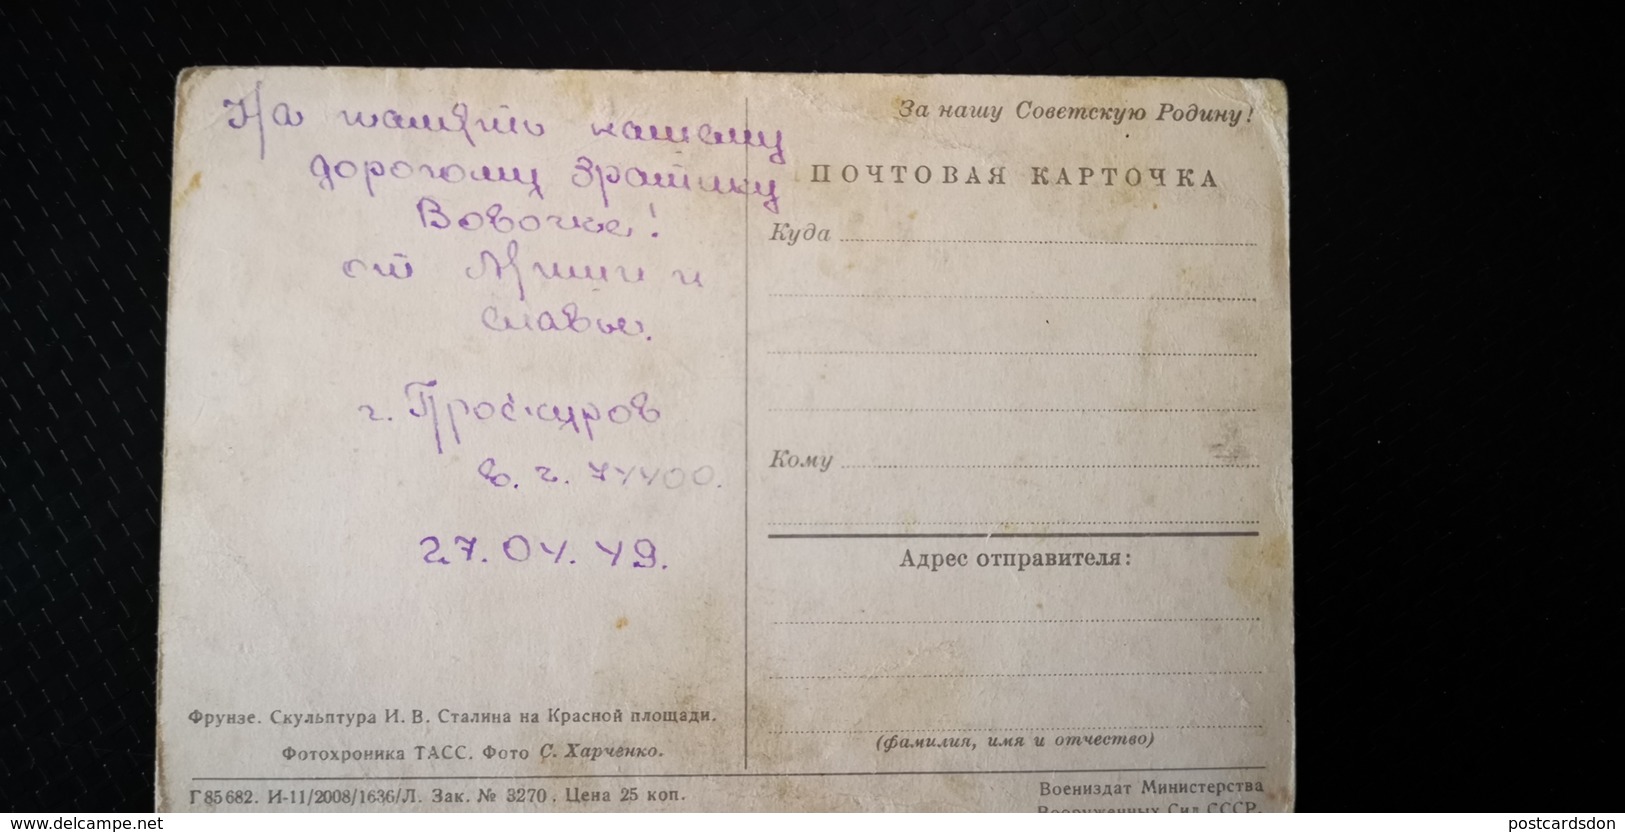 На память нашему
дорогому братику
Вовочке!
от Миши и
Славы.
г. Проскуров
в. ч. 74400.
27.04.49.
Фрунзе. Скульптура И. В. Сталина на Красной площади.
Фотохроника ТАСС. Фото С. Харченко.
Г85682. И-11/2008/1636/Л. Зак. № 3270. Цена 25 коп.
За нашу Советскую Родину!
ПОЧТОВАЯ КАРТОЧКА
Куда
Кому
Адрес отправителя:
(фамилия, имя и отчество)
Воениздат Министерства
Вооруженных Сил СССР.
www.delcampe.net
postcardsdon